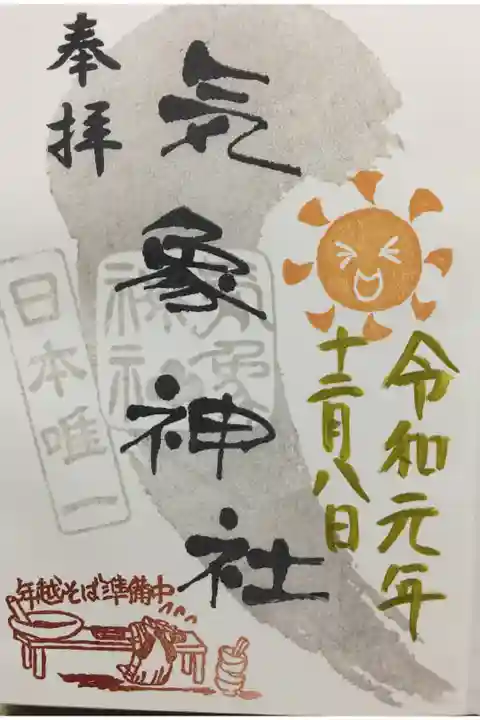 奉拝
気象神社
日本唯一
気象
神社
令和元年
十二月八日
年越そば準備中